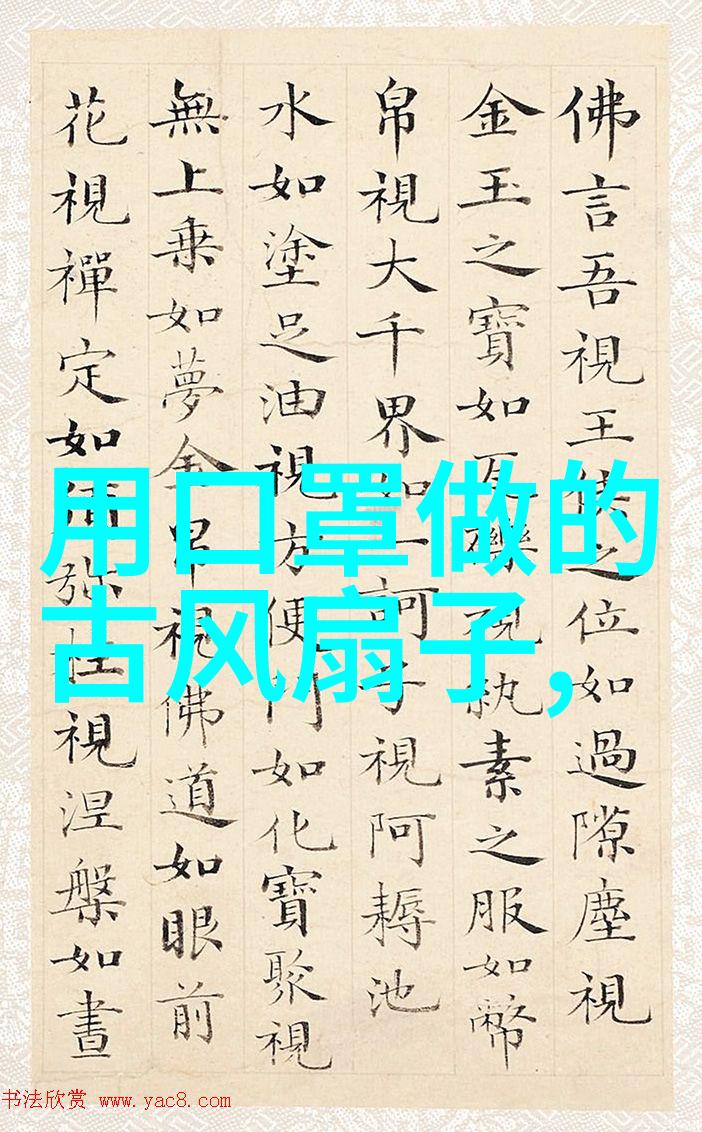 佛言吾視王侯之位如過隙塵視
金玉之寶如瓦礫視紈素之服如幣
帛視大千界如一訶子視阿耨池
水如塗足油視方便門如化寶聚視
無上乗如夢金帛視佛道如眼前
花視禪定如須弥柱視涅槃如晝
用口罩做的
古风扇子,
书法欣赏 www.yac8.com